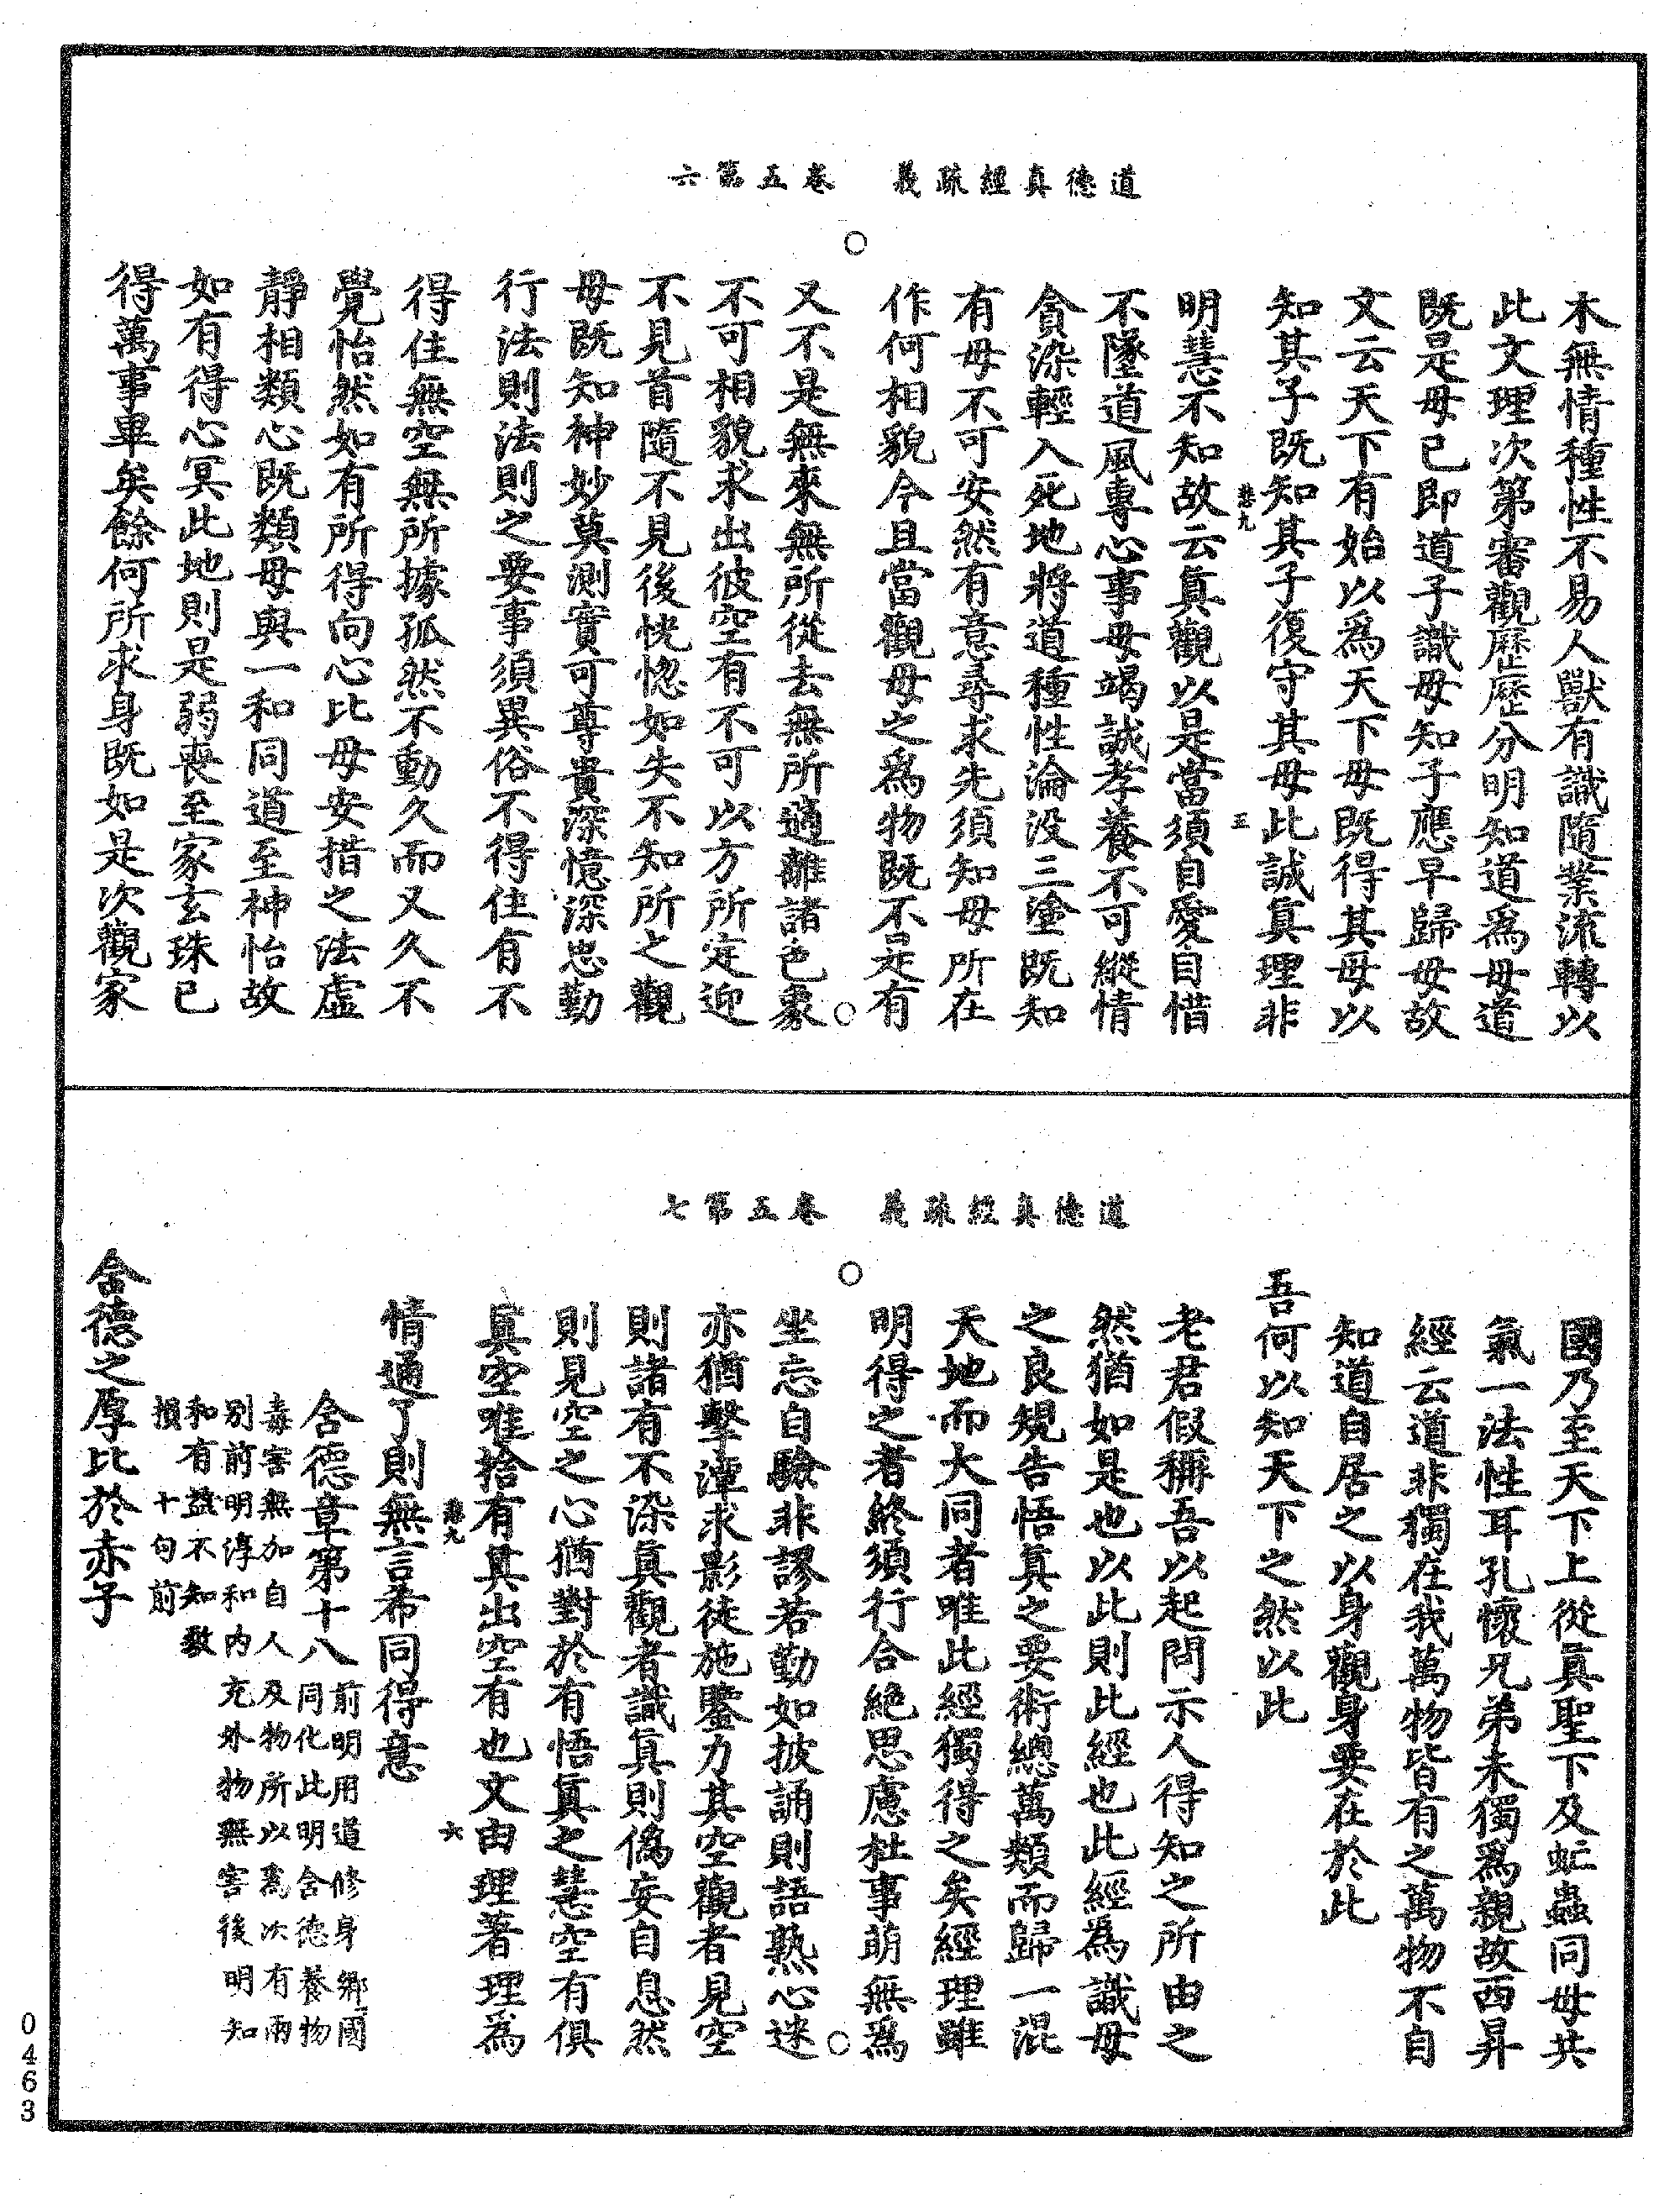 道德真經疏義　卷五第六
木無情種性不易人獸有識隨業流轉以
此文理次第審觀歷歷分明知道爲母道
既是母已即道子識母知子應早歸母故
文云天下有始以爲天下母既得其母以
知其子既知其子復守其母此誠真理非
悲九　五
明慧不知故云真觀以是當須自愛自惜
不墜道風專心事母竭誠孝養不可縱情
貪染輕入死地將道種性淪没三塗既知
有母不可安然有意尋求先須知母所在
作何相貌今且當觀母之爲物既不是有
又不是無來無所從去無所適離諸色象
不可相貌求出彼空有不可以方所定迎
不見首隨不見後恍惚如失不知所之觀
母既知神妙莫測實可尊貴深憶深忠勤
行法則法則之要事須異俗不得住有不
得住無空無所據孤然不動久而又久不
覺怡然如有所得向心比母安措之法虛
靜相類心既類母與一和同道至神怡故
如有得心冥此地則是弱喪至家玄珠已
得萬事畢矣餘何所求身既如是次觀家
道德真經疏義　卷五第七
國乃至天下上從真聖下及虻蟲同母共
氣一法性耳孔懷兄弟未獨爲親故西昇
經云道非獨在我萬物皆有之萬物不自
知道自居之以身觀身要在於此
吾何以知天下之然以此
老君假稱吾以起問示人得知之所由之
然猶如是也以此則此經也此經爲識母
之良規告悟真之要術總萬類而歸一混
天地而大同者唯此經獨得之矣經理雖
明得之者終須行合絕思慮杜事萌無爲
坐忘自驗非謬若勤如披誦則語熟心迷
亦猶擊潭求影徒施鑒力其空觀者見空
則諸有不染真觀者識真則僞妄自息然
則見空之心猶對於有悟真之慧空有俱
真空唯捨有真出空有也文由理著理爲
悲九　六
情通了則無言希同得意
含德章第十八前明用道修身鄉國
同化此明含德養物
毒害無加自人及物所以爲次有兩
別前明淳和内充外物無害後明知
和有益不知致
損　十句前
含德之厚比於赤子
0463